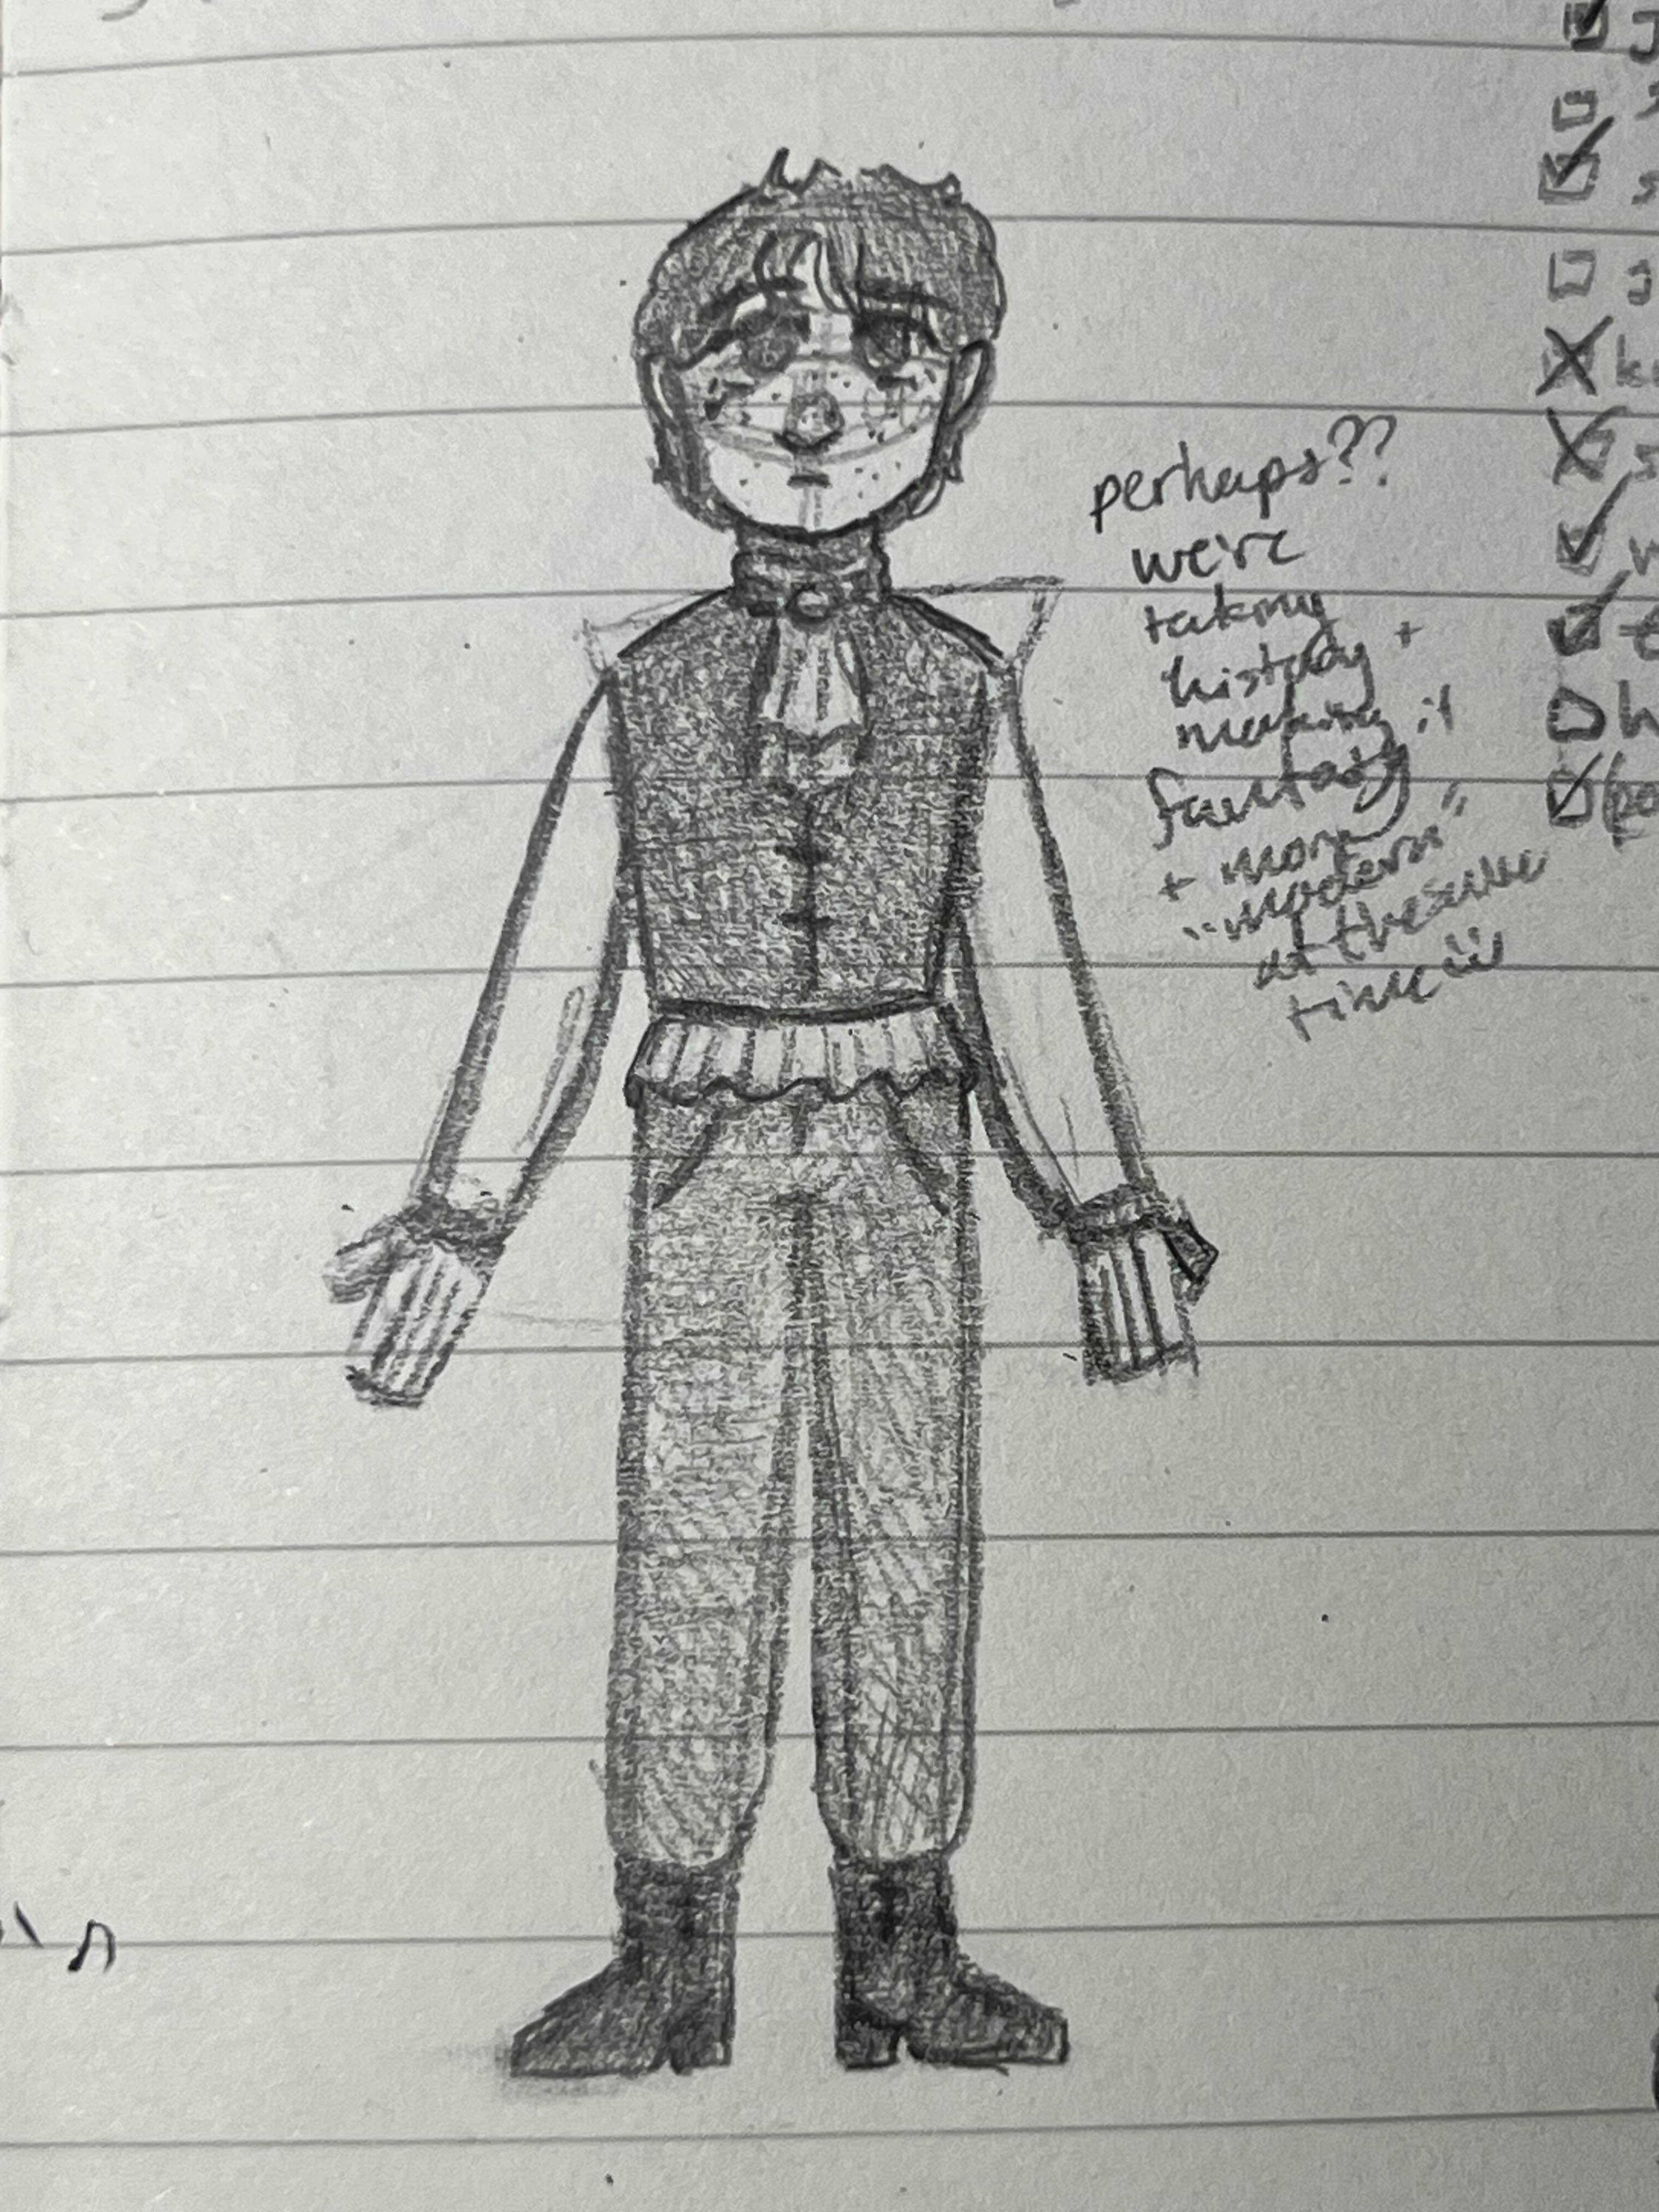 perhaps??
we're
taking
history +
making it
fantasy
+ more
"modern"
at the same
time